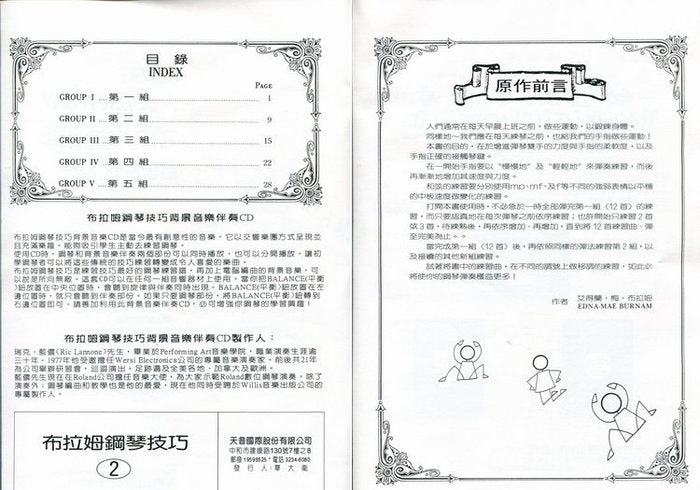 目錄
INDEX
PAGE
GROUP I ....第一組 1
GROUP II ....第二組 9
GROUP III ....第三組 15
GROUP IV ....第四組 22
GROUP V ....第五組 28
布拉姆鋼琴技巧背景音樂伴奏CD
布拉姆鋼琴技巧背景音樂CD是當今最有創意性的音樂，它以交響樂團方式呈現並
且充滿樂趣，能夠吸引學生主動去練習鋼琴。
使用CD時，鋼琴和背景音樂伴奏兩個部份可以同時播放，也可以分開播放，讓初
學鋼琴者可以將這些傳統的技巧練習轉變成令人喜愛的樂曲。
布拉姆鋼琴技巧是練習技巧最好的鋼琴練習譜，再加上電腦編曲的背景音樂，可
以說是所向無敵。這套CD您可以在任何一組音響器材上使用。當你把BALANCE(平衡
)鈕放置在中央位置時，會聽到旋律與伴奏同時出現。BALANCE(平衡)鈕放置在左
邊位置時，就只會聽到伴奏部份。如果只要鋼琴部份，將BALANCE(平衡)鈕轉到
右邊位置即可。請善加利用此背景音樂伴奏CD，必可增強你鋼琴的學習興趣！
布拉姆鋼琴技巧背景音樂伴奏CD製作人：
瑞克．藍儂(Ric Lannone)先生，畢業於Performing Art音樂學院，職業演奏生涯逾
三十年。1977年他受邀擔任Wersi Electronics公司的專屬音樂演奏家，前後共21年
為公司舉辦研習會，巡迴演出，足跡遍及全美各地、加拿大及歐洲。
藍儂先生現在在Roland公司擔任音樂大使，為大家示範Roland數位鋼琴演奏。除了
演奏外，鋼琴編曲和教學也是他的最愛，現在他同時受聘於Willis音樂出版公司的
專屬製作人。
布拉姆鋼琴技巧
2
天音國際股份有限公司
中和市建康路130號7樓之8
郵撥 19598525 * 電話 3234-6080
發行人：華大衛
原作前言
人們通常在每天早晨上班之前，做些運動，以鍛鍊身體。
同樣地～我們應在每天練琴之前，也給我們的手指做些運動！
本書的目的，在於增進彈琴雙手的力度與手指的柔軟度，以及
手指正確的接觸琴鍵。
在一開始手指要以“慢慢地”及“輕輕地”來彈奏練習，而後
再漸漸地增加其速度與力度。
和弦的練習要分別使用mp、mf、及f等不同的強弱表情以平穩
的中板速度做變化的練習。
打開本書使用時，不必急於一時全部彈完第一組（12首）的練習，
而只要認真地在每次彈琴之前依序練習；也許開始只練習2首
或3首，待練熟後，再依序增加、再增加，直到將12首練曲、彈
至完美為止。
當完成第一組（12首）後，再依照同樣的彈法練習第2組，以
及接續的其他新組練習。
試著將書中的練習曲，在不同的調號上做移調的練習，如此必
將使你的鋼琴彈奏獲益更多！
作者 艾得蘭．梅．布拉姆
EDNA-MAE BURNAM